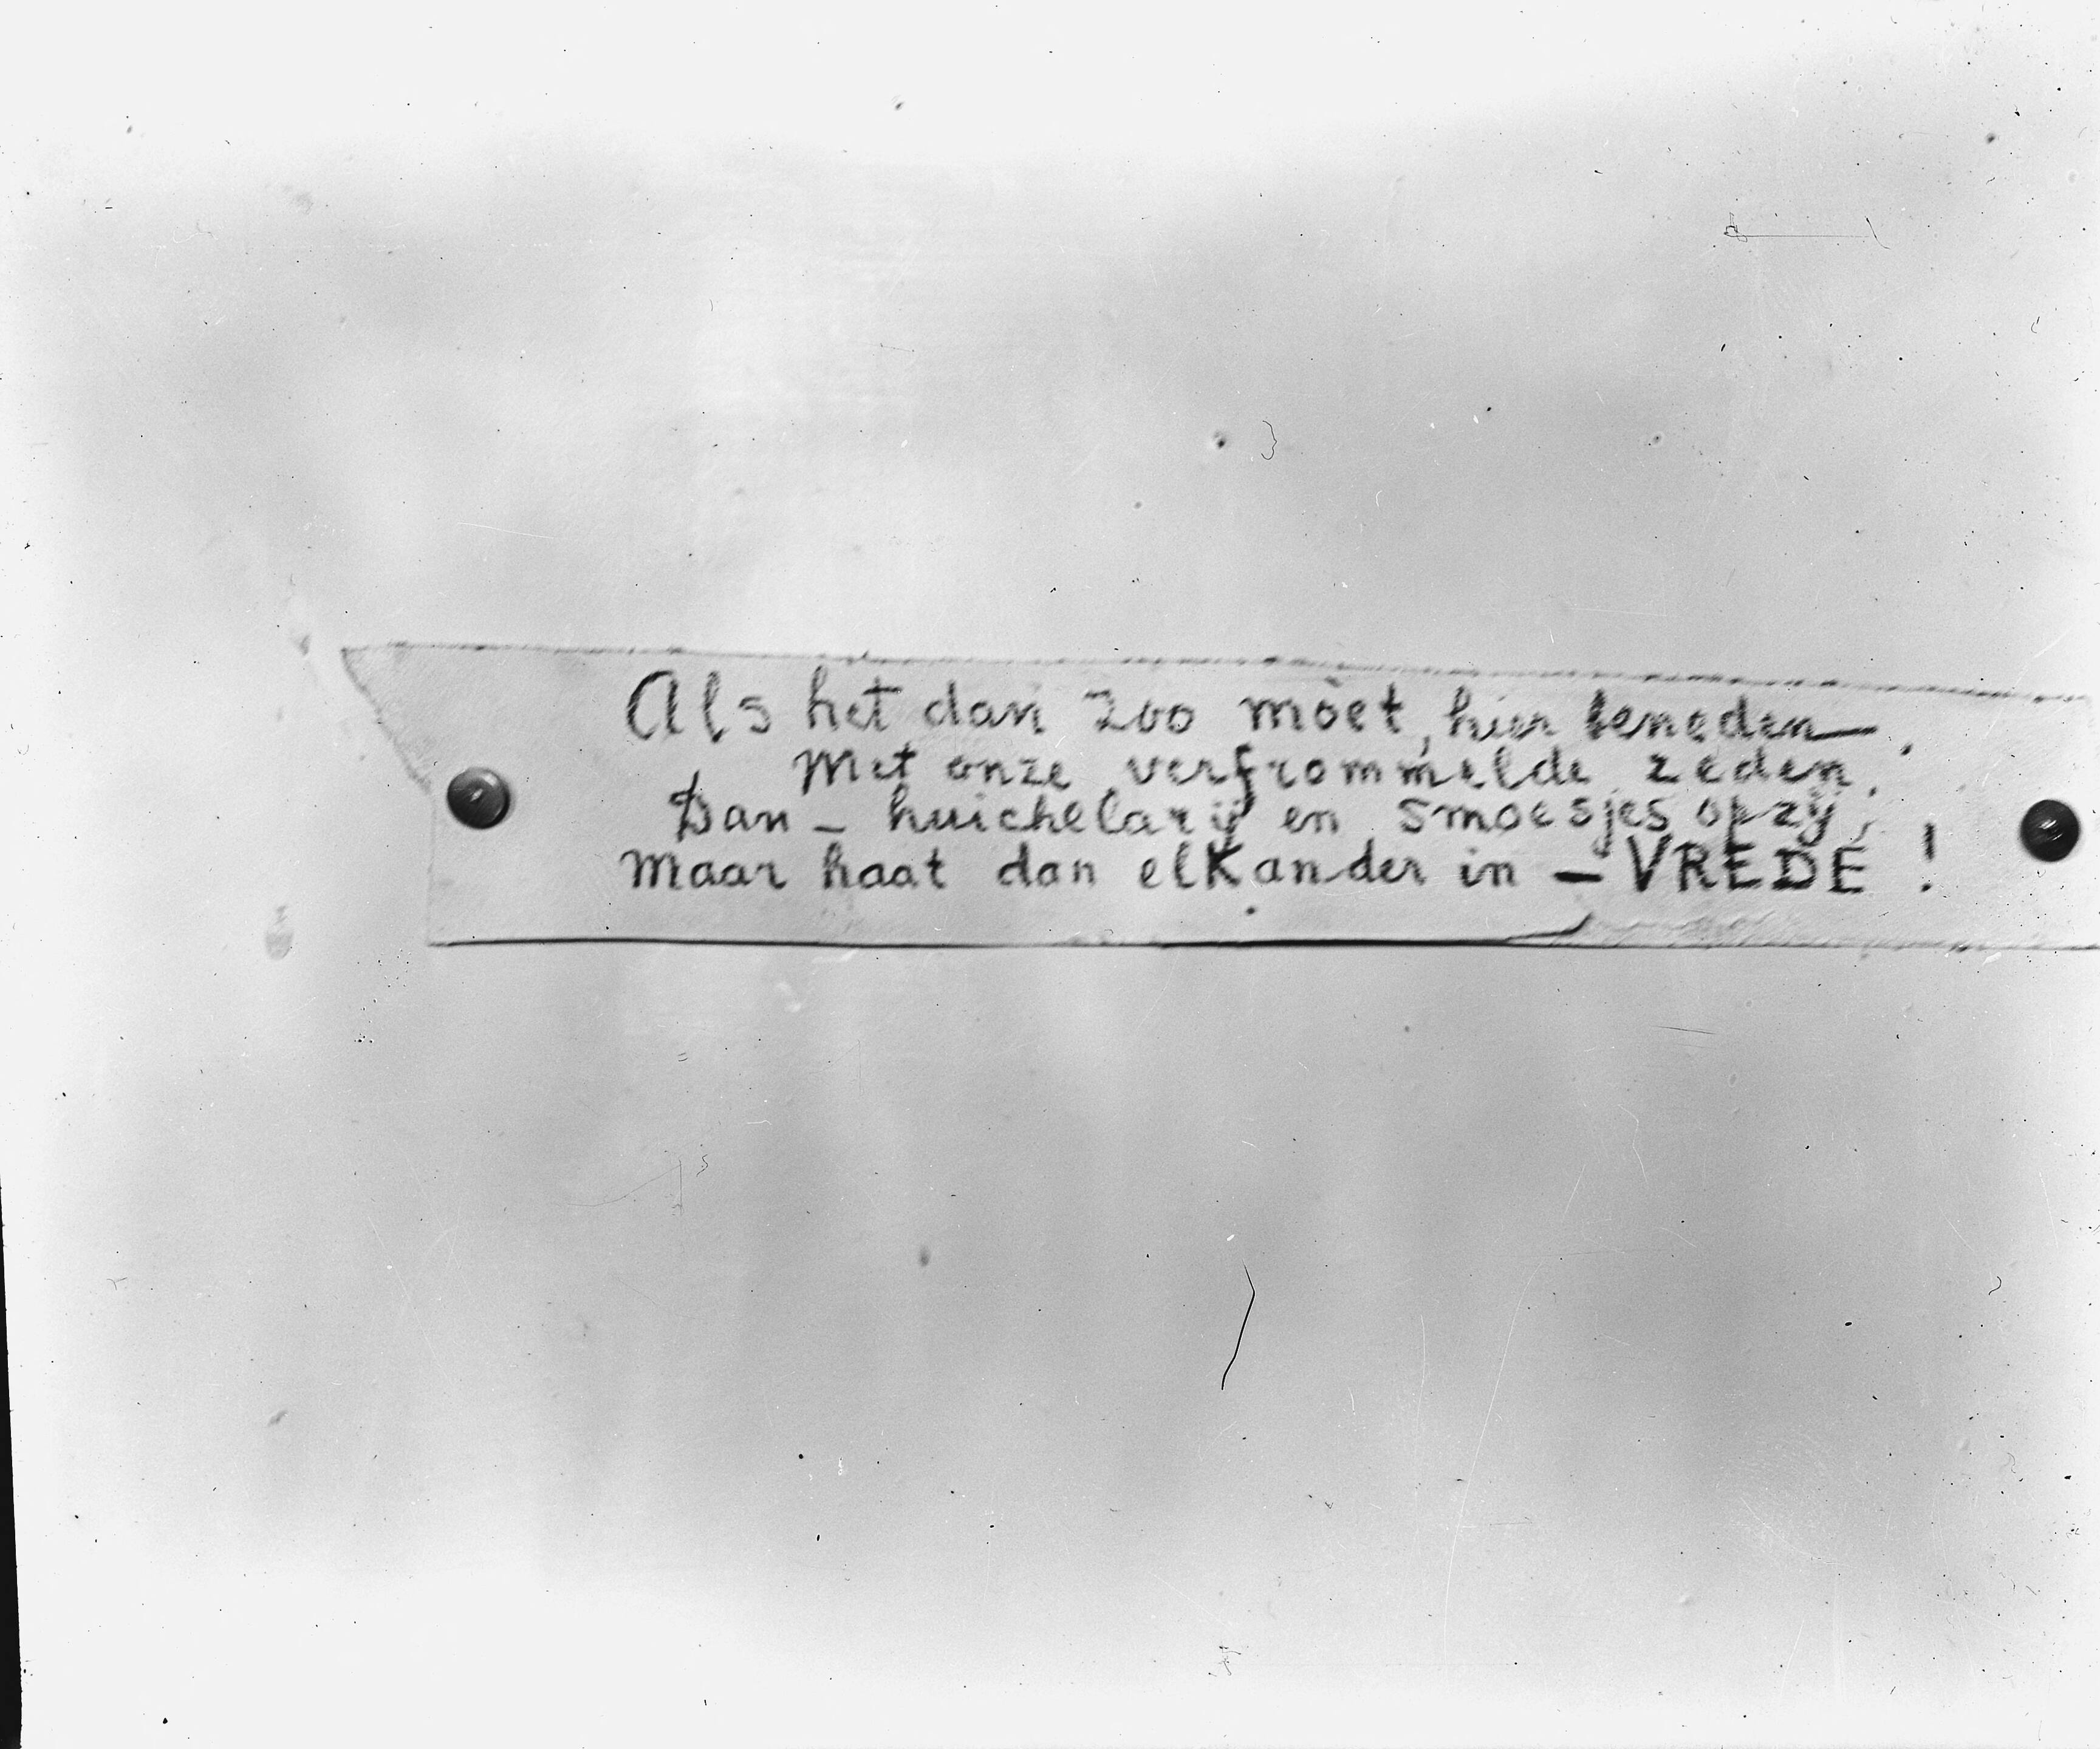 Als het dan zoo mòet, hier beneden—,
Met onze verfrommelde zeden,
Dan – huichelarij en smoesjes opzij,
Maar haat dan elkander in – VREDE!